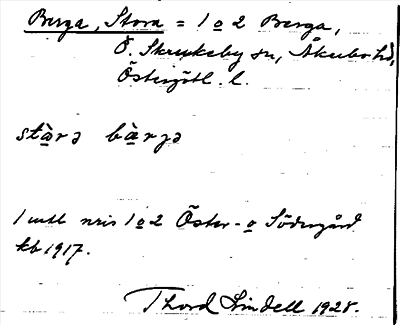 Berga, Stora = 1 o 2 Berga,
Ö. Skrukeby sn, Åkerbo hd,
Östergötl. l.
stὰrə bὰrgə
1 mtl nris 1 o 2 Öster- o Södergård
kb 1917.
Thord Lindell 1928.